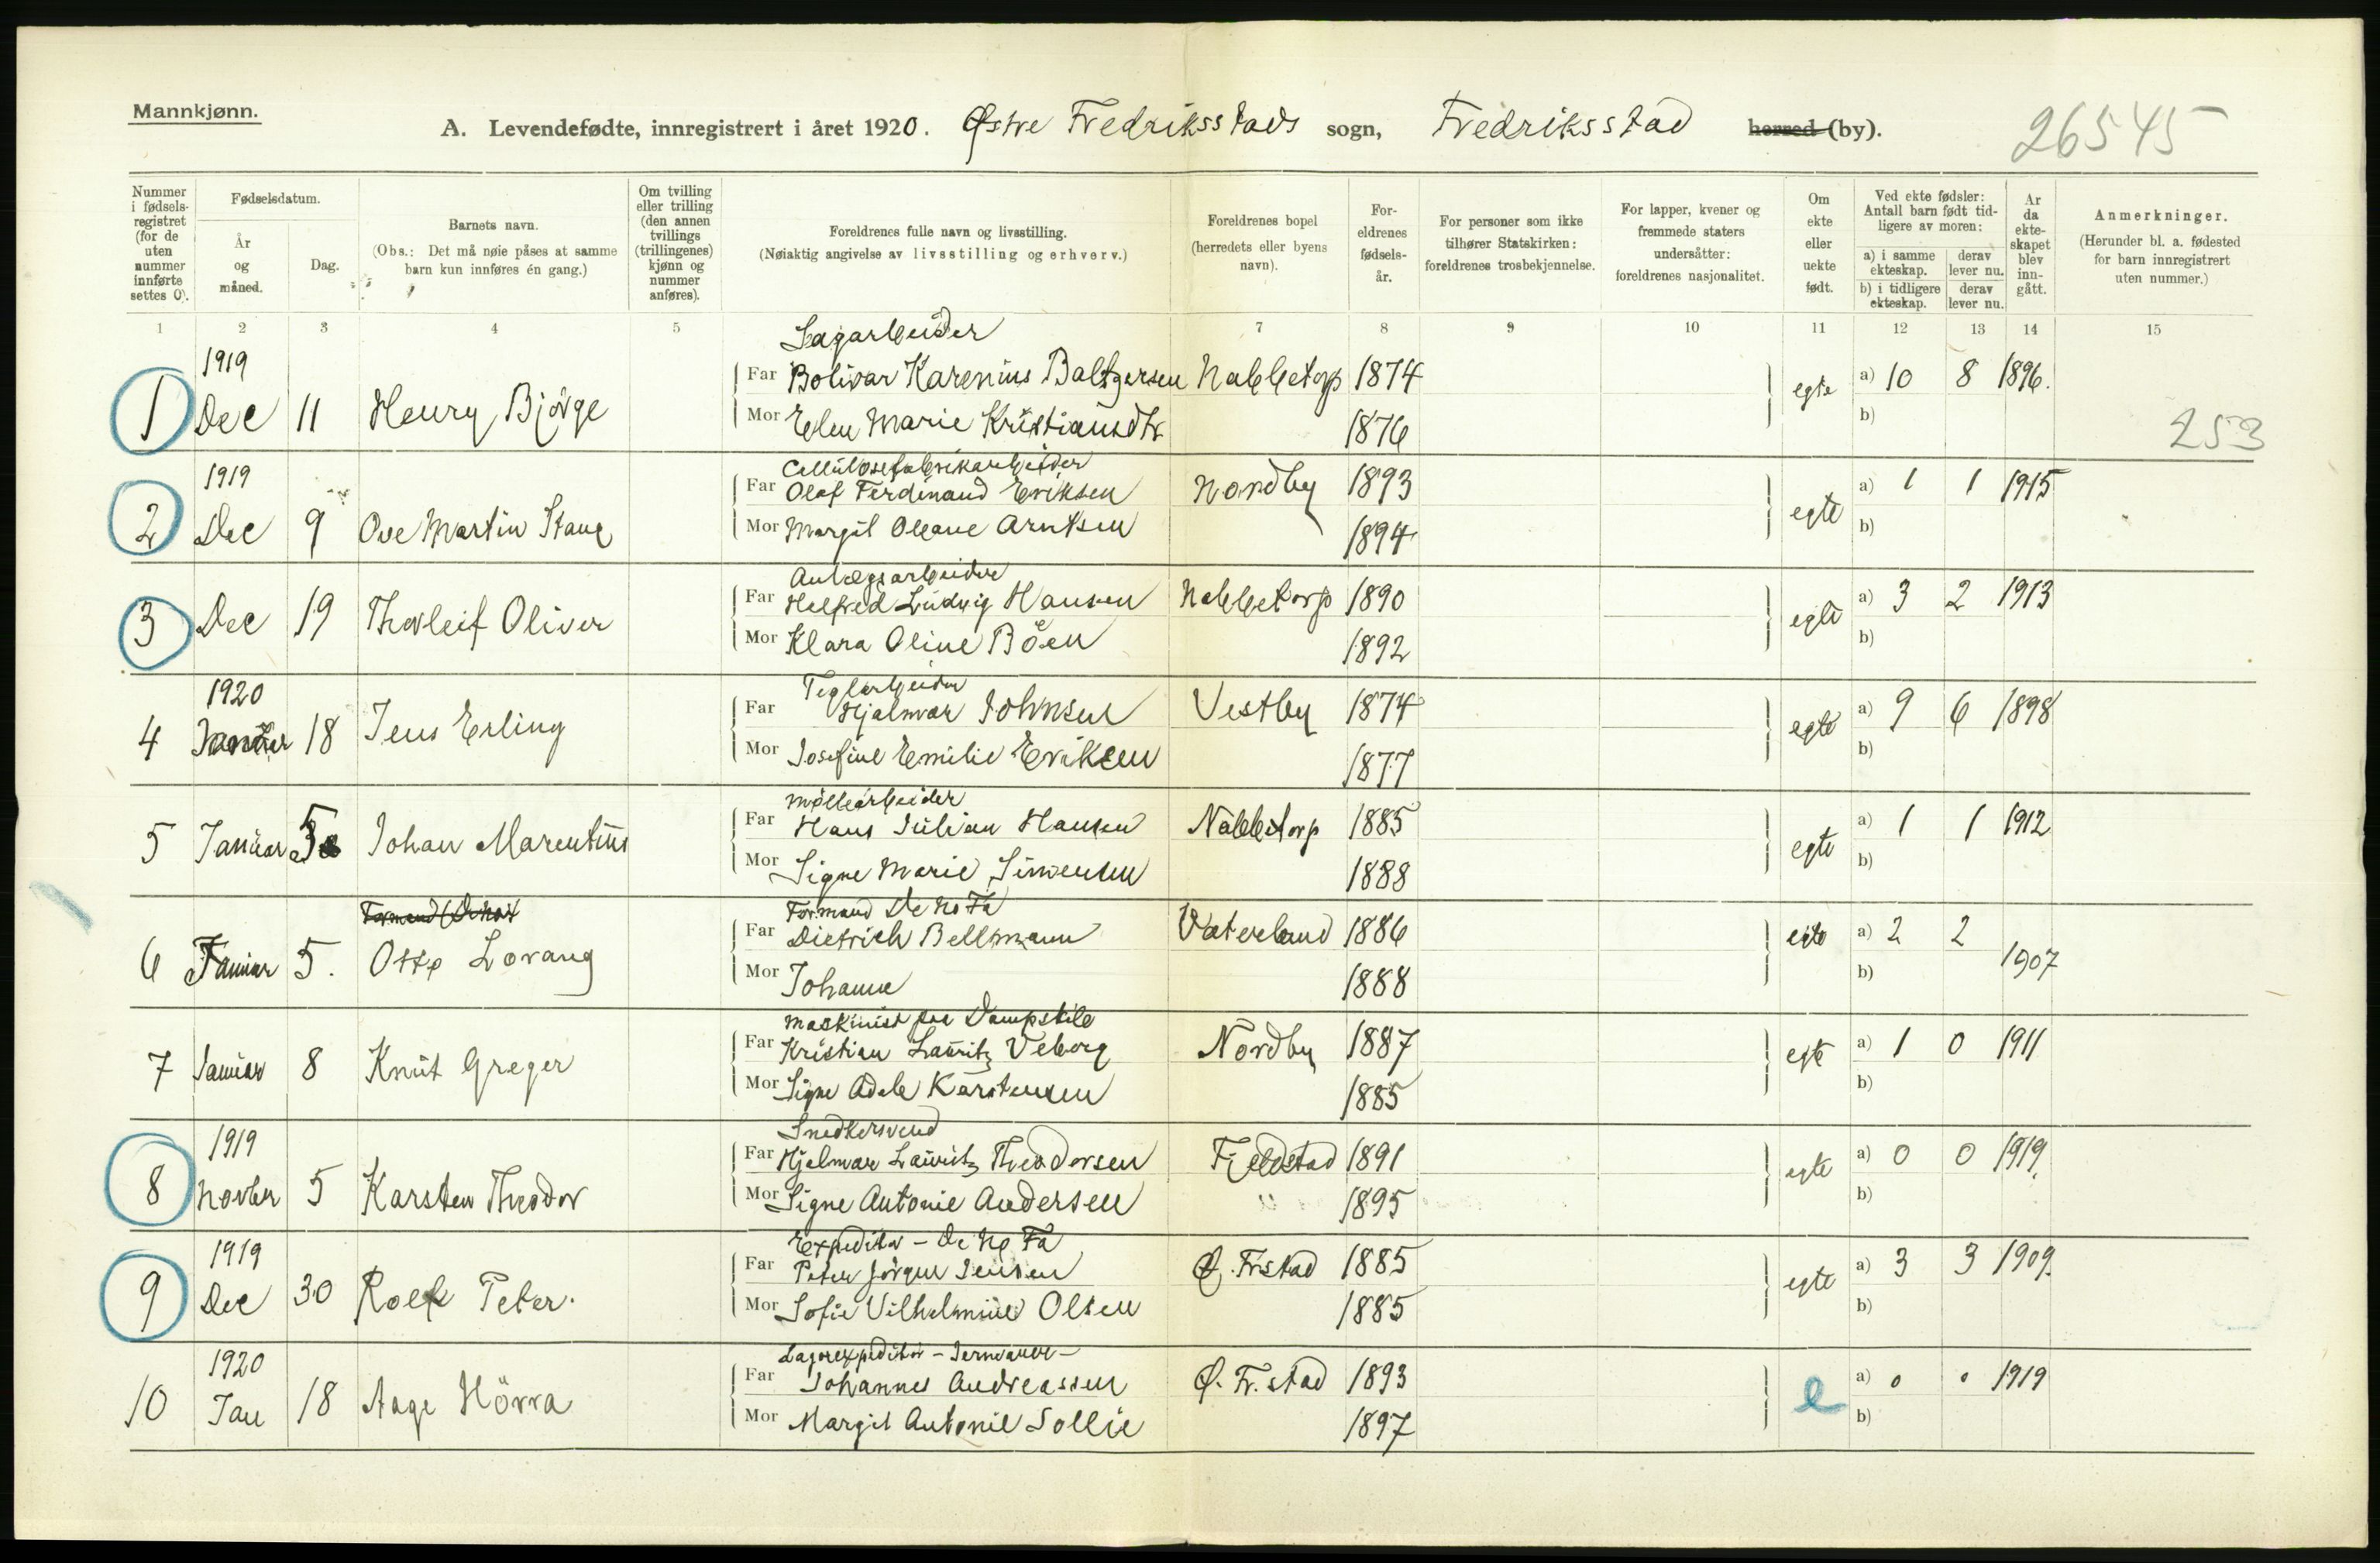 Mannkjønn.
A. Levendefødte, innregistrert i året 1920. Østre Fredriksstads sogn, Fredriksstad herred (by). 26545
Nummer i fødsels-registret (for de uten nummer innførte settes 0).
Fødselsdatum.
År og måned.
Dag.
Barnets navn.
(Obs.: Det må nøie påses at samme barn kun innføres én gang.)
Om tvilling eller trilling (den annen tvillings (trillingenes) kjønn og nummer anføres).
Foreldrenes fulle navn og livsstilling.
(Nøiaktig angivelse av livsstilling og erhverv.)
Foreldrenes bopel (herredets eller byens navn).
For-eldrenes fødsels-år.
For personer som ikke tilhører Statskirken: foreldrenes trosbekjennelse.
For lapper, kvener og fremmede staters undersåtter: foreldrenes nasjonalitet.
Om ekte eller uekte født.
Ved ekte fødsler: Antall barn født tid-ligere av moren:
a) i samme ekteskap. derav lever nu.
b) i tidligere ekteskap. derav lever nu.
År da ekte-skapet blev inn-gått.
Anmerkninger.
(Herunder bl. a. fødested for barn innregistrert uten nummer.)
1 2 3 4 5 7 8 9 10 11 12 13 14 15
1919 Sagarbeider
Far Bolivar Karenius Baltzersen Nabbetorp 1874 a) 10 8 1896.
1 Dec 11 Henry Bjørge egte
Mor Elen Marie Kristiansdtr 1876 b)
253
1919 Cellulosefabrikarbeider
Far Olaf Ferdinand Eriksen Nordby 1893 a) 1 1 1915
2 Dec 9 Ove Martin Stang egte
Mor Margit Oleane Arntsen 1894 b)
Anlægsarbeider
Far Helfred Ludvig Hansen Nabbetorp 1890 a) 3 2 1913
3 Dec 19 Thorleif Oliver egte
Mor Klara Oline Böen 1892 b)
1920 Teglarbeider
Far Hjalmar Johnsen Vestby 1874 a) 9 6 1898
4 Januar 18 Jens Erling egte
Mor Josefine Emilie Eriksen 1877 b)
Møllearbeider
Far Hans Julian Hansen Nabbetorp 1885 a) 1 1 1912
5 Januar 5 Johan Marentius egte
Mor Signe Marie Simensen 1888 b)
Formand De No Fa
Far Dietrich Bellmann Vaterland 1886 egte a) 2 2
6 Januar 5. Otto Lorang 1907
Mor Johanne 1888 b)
Maskinist paa Dampskib
Far Kristian Lauritz Veborg Nordby 1887 a) 1 0 1911
7 Januar 8 Knut Greger egte
Mor Signe Adele Karstensen 1885 b)
1919 Snedkersvend
Far Hjalmar Lauritz Theodorsen Fjeldstad 1891 a) 0 0 1919.
8 Novbr 5 Karsten Theodor egte
Mor Signe Antonie Andersen " 1895 b)
1919 Expeditør - De No Fa
Far Peter Jørgen Jensen Ø. Fr.stad 1885 a) 3 3 1909.
9 Dec 30 Rolf Peter. egte
Mor Sofie Vilhelmine Olsen 1885 b)
1920 Lagerexpeditør - Jernvarer -
Far Johannes Andreassen Ø. Fr. stad 1893 a) 0 0 1919
10 Jan 18 Aage Hövra e
Mor Margit Antonie Sollie 1897 b)